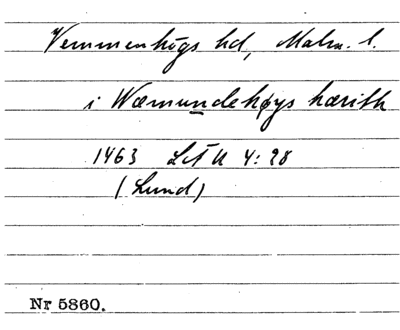 Vemmenhögs hd, Malm. l.
i Wæmundehøys hærith
1463 LÅ U 4:28
(Lund)
Nr 5860.